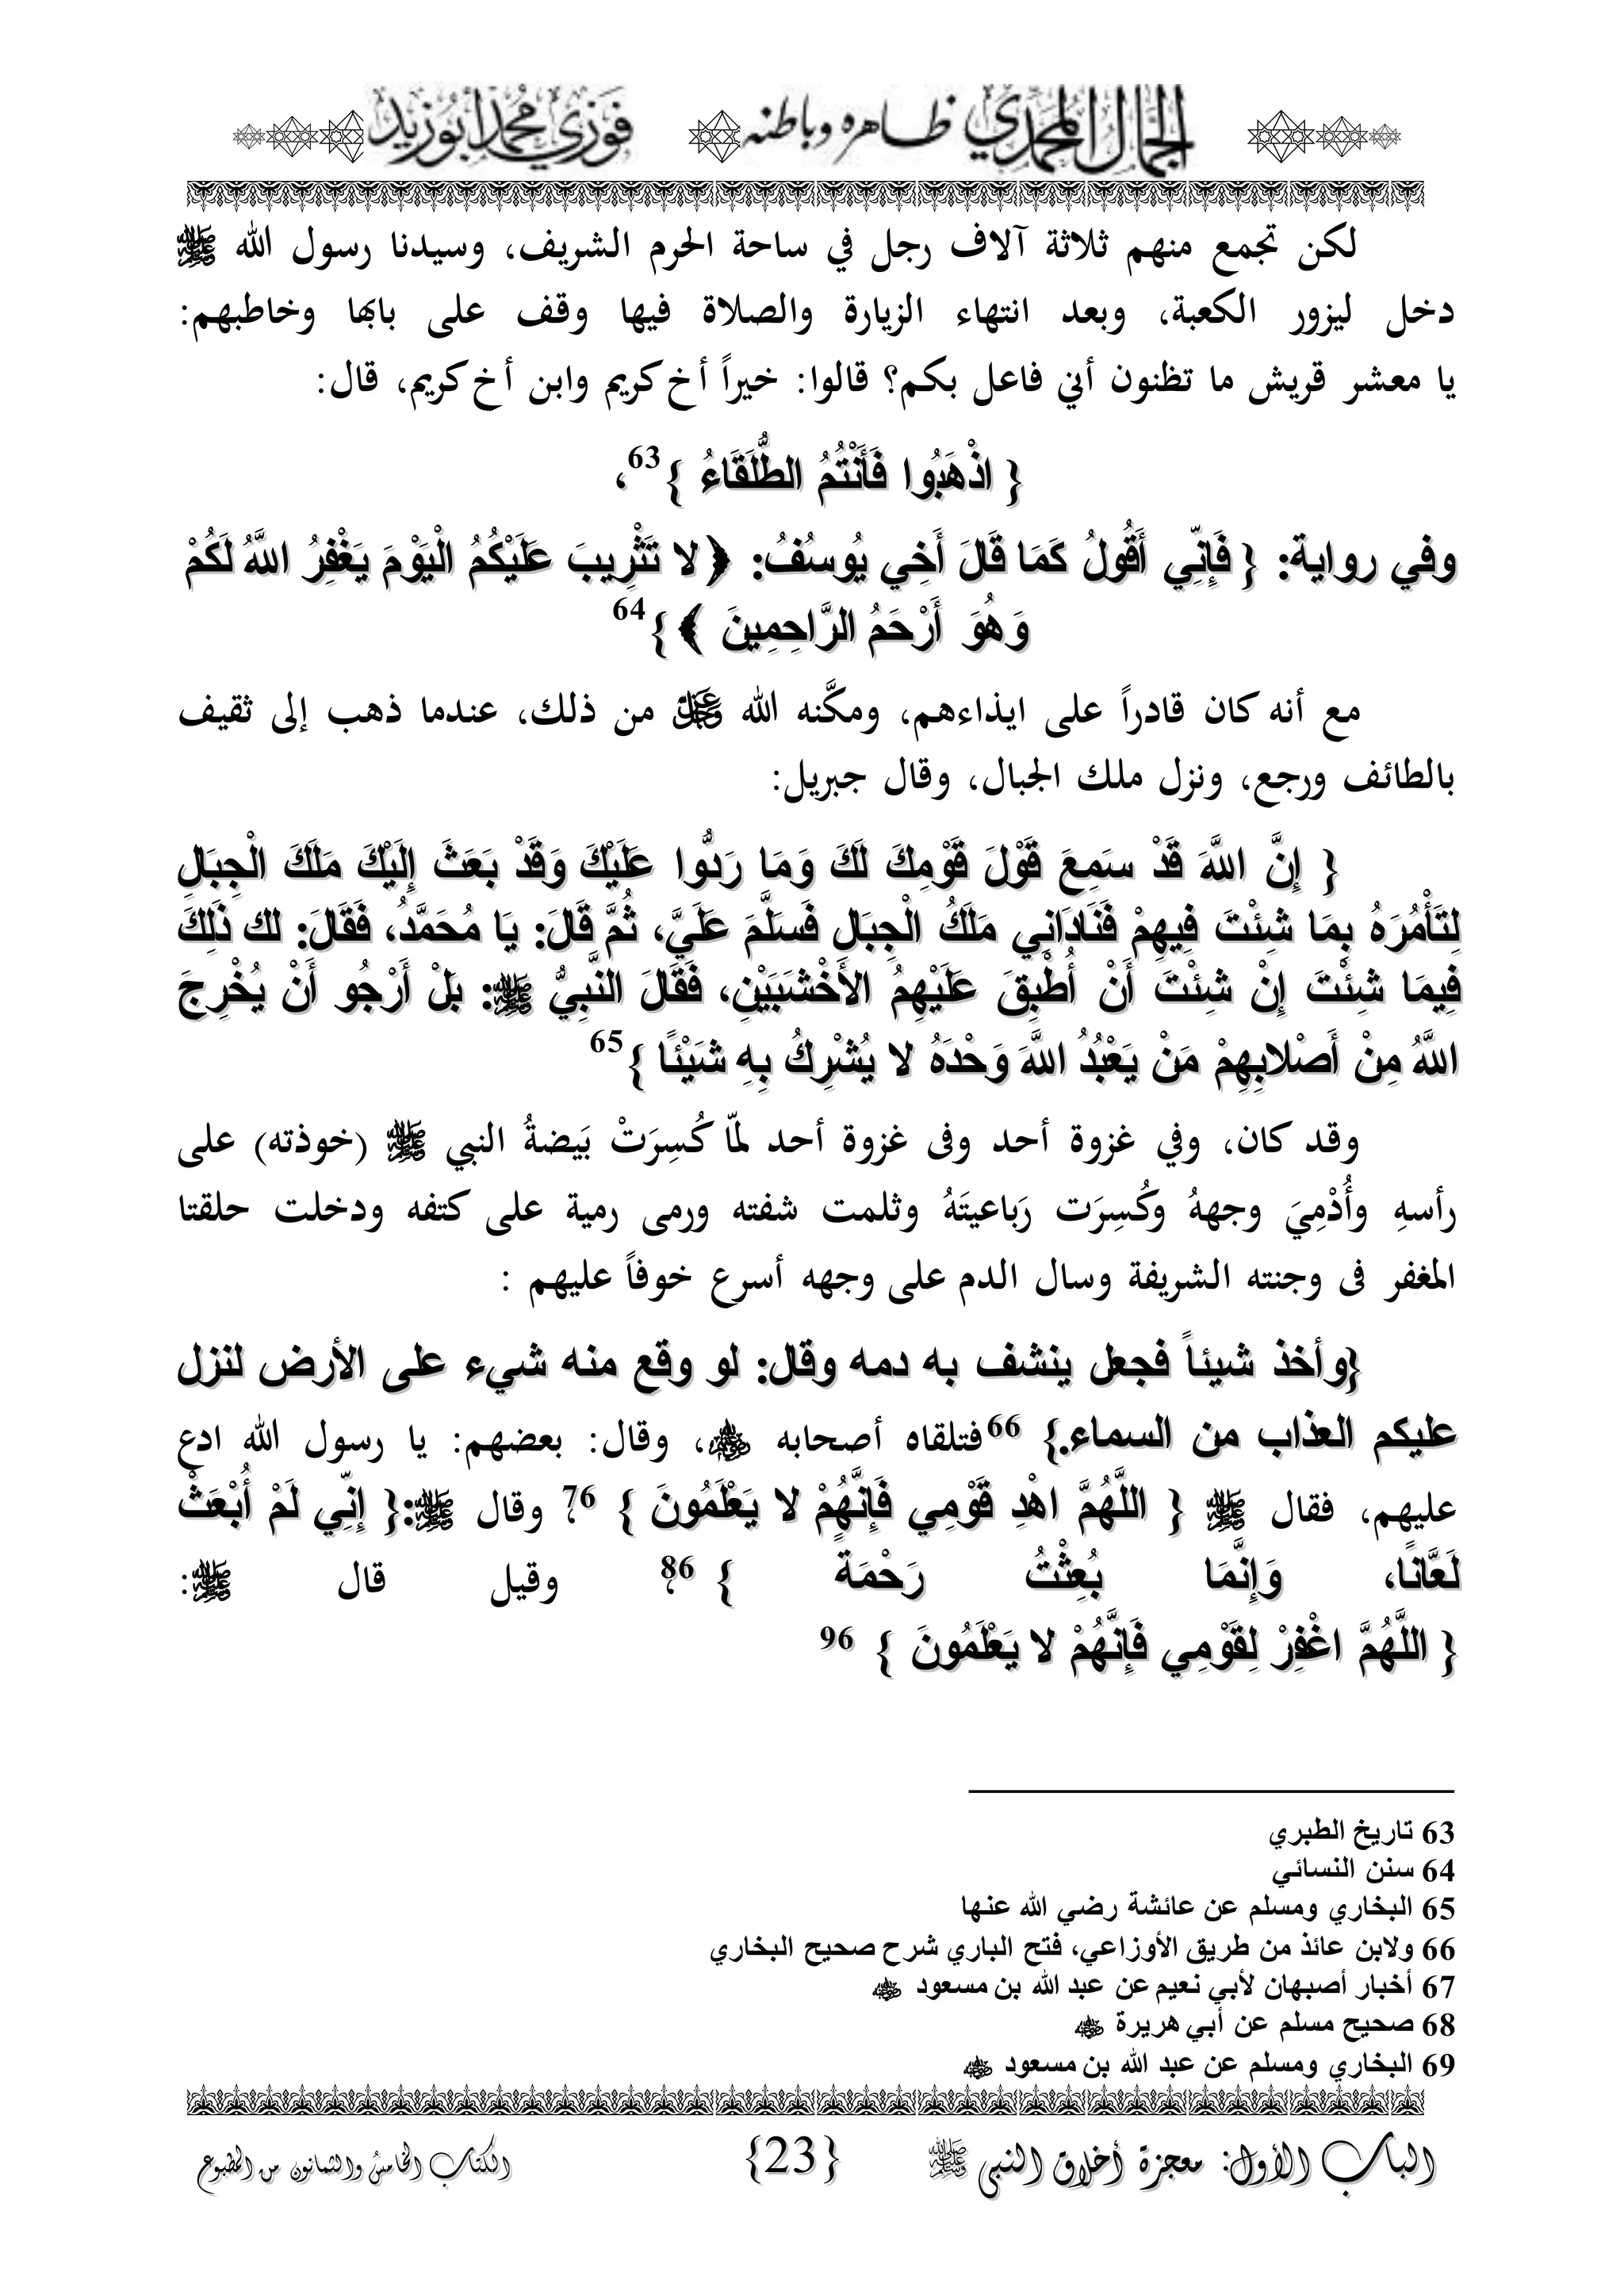 الجمال المحمدي ظاهره وباطنه فوزي محمد أبوزيد
لكن تجمع منهم ثلاثة آلاف رجل في ساحة الحرم الشريف، وسيدنا رسول الله ﷺ
دخل ليزور الكعبة، وبعد انتهاء الزيارة والصلاة فيها وقف على بابها وخاطبهم:
يا معشر قريش ما تظنون أني فاعل بكم؟ قالوا: خيراً أخ كريم وابن أخ كريم، قال:
{ اذْهَبُوا فَأَنْتُمُ الطُّلَقَاءُ }63،
وفي رواية: { فَإِنِّي أَقُولُ كَمَا قَالَ أَخِي يُوسُفُ: ﴿ لا تَثْرِيبَ عَلَيْكُمُ الْيَوْمَ يَغْفِرُ اللَّهُ لَكُمْ
وَهُوَ أَرْحَمُ الرَّاحِمِينَ ﴾}64
مع أنه كان قادراً على ايذاءهم، ومكَّنه الله ﷿ من ذلك، عندما ذهب إلى ثقيف
بالطائف ورجع، ونزل ملك الجبال، وقال جبريل:
{ إِنَّ اللَّهَ قَدْ سَمِعَ قَوْلَ قَوْمِكَ لَكَ وَمَا رَدُّوا عَلَيْكَ وَقَدْ بَعَثَ إِلَيْكَ مَلَكَ الْجِبَالِ
لِتَأْمُرَهُ بِمَا شِئْتَ فِيهِمْ فَنَادَانِي مَلَكُ الْجِبَالِ فَسَلَّمَ عَلَيَّ، ثُمَّ قَالَ: يَا مُحَمَّدُ، فَقَالَ: لك ذَلِكَ
فِيمَا شِئْتَ إِنْ شِئْتَ أَنْ أُطْبِقَ عَلَيْهِمُ الأَخْشَبَيْنِ، فَقَالَ النَّبِيُّ ﷺ: بَلْ أَرْجُو أَنْ يُخْرِجَ
اللَّهُ مِنْ أَصْلابِهِمْ مَنْ يَعْبُدُ اللَّهَ وَحْدَهُ لا يُشْرِكُ بِهِ شَيْئًا }65
وقد كان، وفي غزوة أحد وفى غزوة أحد لمّا كُسِرَتْ بَيضةُ النبي ﷺ (خوذته) على
رأسهِ وأُدْمِيَ وجههُ وكُسِرَت رَباعيتَهُ وثلمت شفته ورمى رمية على كتفه ودخلت حلقتا
المغفر فى وجنته الشريفة وسال الدم على وجهه أسرع خوفاً عليهم :
{وأخذ شيئاً فجعل ينشف به دمه وقال: لو وقع منه شيء على الأرض لنزل
عليكم العذاب من السماء.} 66 فتلقاه أصحابه ﷺ، وقال: بعضهم: يا رسول الله ادع
عليهم، فقال ﷺ { اللَّهُمَّ اهْدِ قَوْمِي فَإِنَّهُمْ لا يَعْلَمُونَ } 76، وقال ﷺ:{ إِنِّي لَمْ أُبْعَثْ
لَعَّانًا، وَإِنَّمَا بُعِثْتُ رَحْمَةً } 86، وقيل قال ﷺ:
{ اللَّهُمَّ اغْفِرْ لِقَوْمِي فَإِنَّهُمْ لا يَعْلَمُونَ } 96
63 تاريخ الطبري
64 سنن النسائي
65 البخاري ومسلم عن عائشة رضي الله عنها
66 ولابن عائذ من طريق الأوزاعي، فتح الباري شرح صحيح البخاري
67 أخبار أصبهان لأبي نعيم عن عبد الله بن مسعود
68 صحيح مسلم عن أبي هريرة
69 البخاري ومسلم عن عبد الله بن مسعود
الباب الأول: معجزة أخلاق النبى ﷺ {23} الكتاب الخامس والثمانون من المطبوع